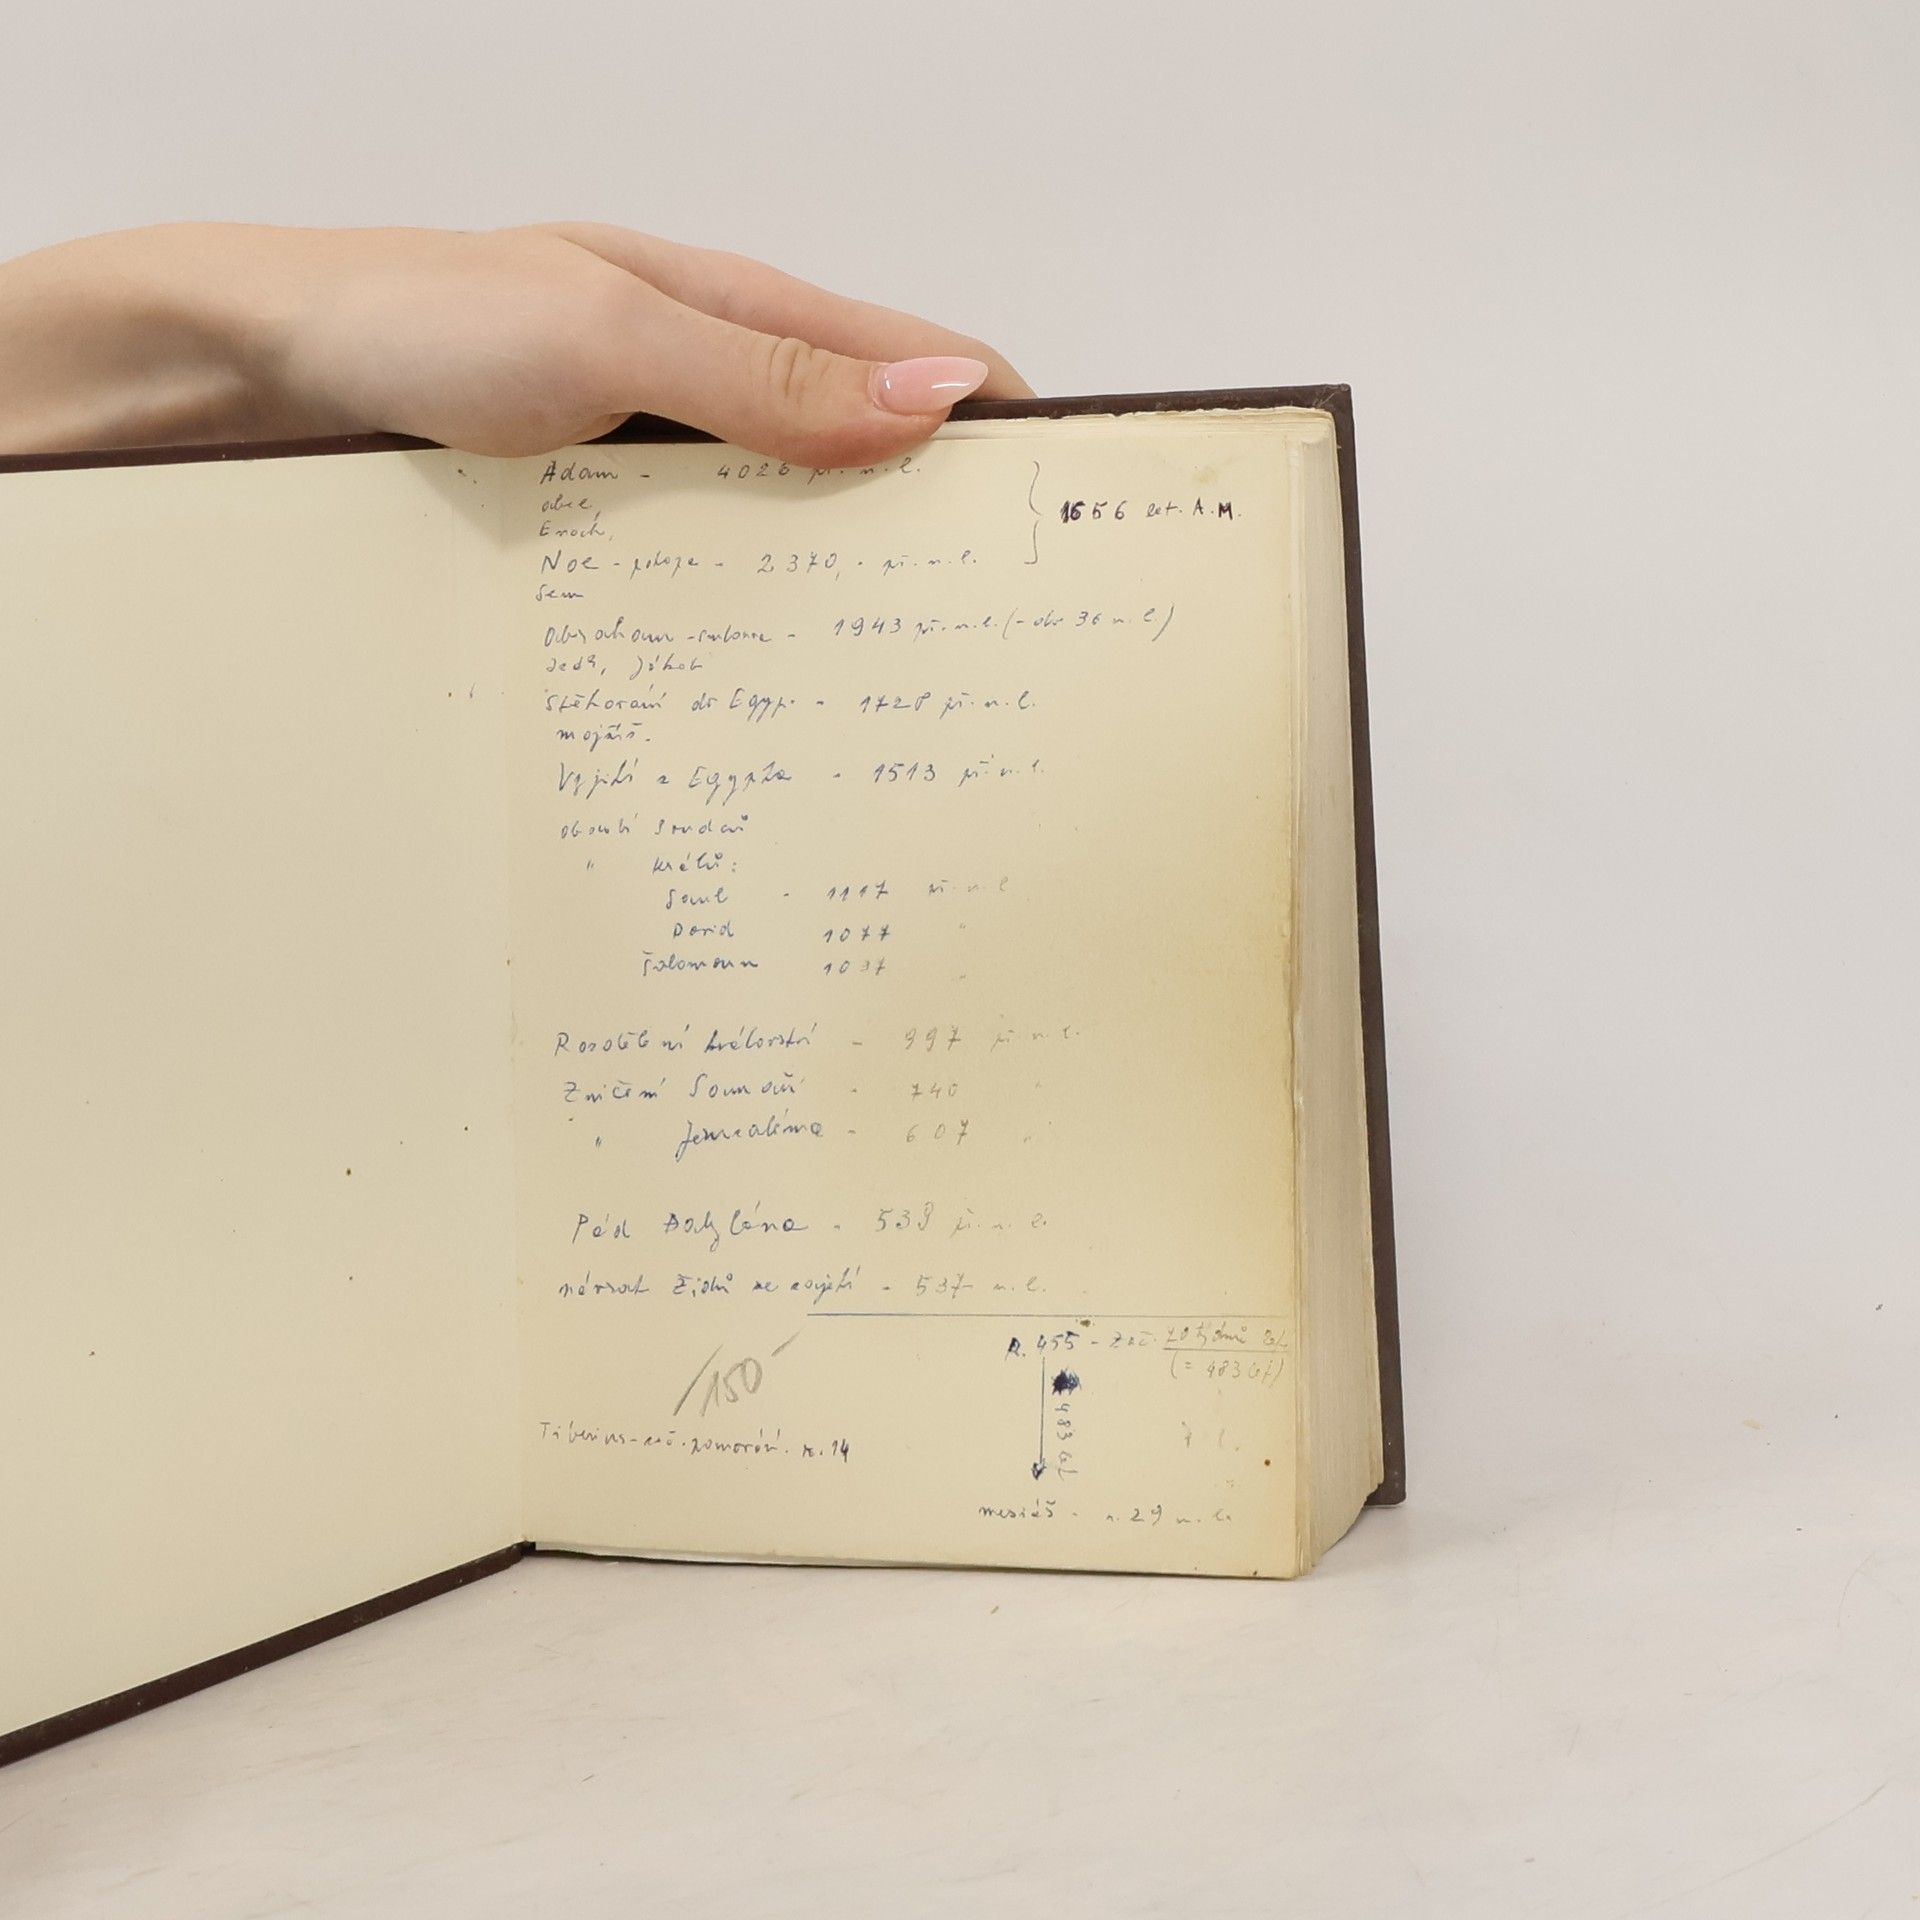 Adam - 4026 př. n. l.
Abel,
Enoch,
1656 let. A.M.
Noe - potopa - 2370, - př. n. l.
Sem
Abraham - smlouva - 1943 př. n. l. (- do 36 n. l.)
Jákob
Stěhování do Egyp. - 1728 př. n. l.
mojžíš.
Vyjití z Egypta - 1513 př. n. l.
období Soudců
" králů:
Saul - 1117 př. n. l
David 1077 "
Šalomoun 1037 "
Rozdělení království - 997 př. n. l.
Zničení Samaří - 740 "
" Jeruzaléma - 607 "
Pád Babylóna - 539 př. n. l.
návrat Židů ze zajetí - 537 n. l.
R. 455 - Zač. 70 týdnů let
(= 483 let)
483 let
150
Tiberius - zač. panování. r. 14
mesiáš - r. 29 n. l.